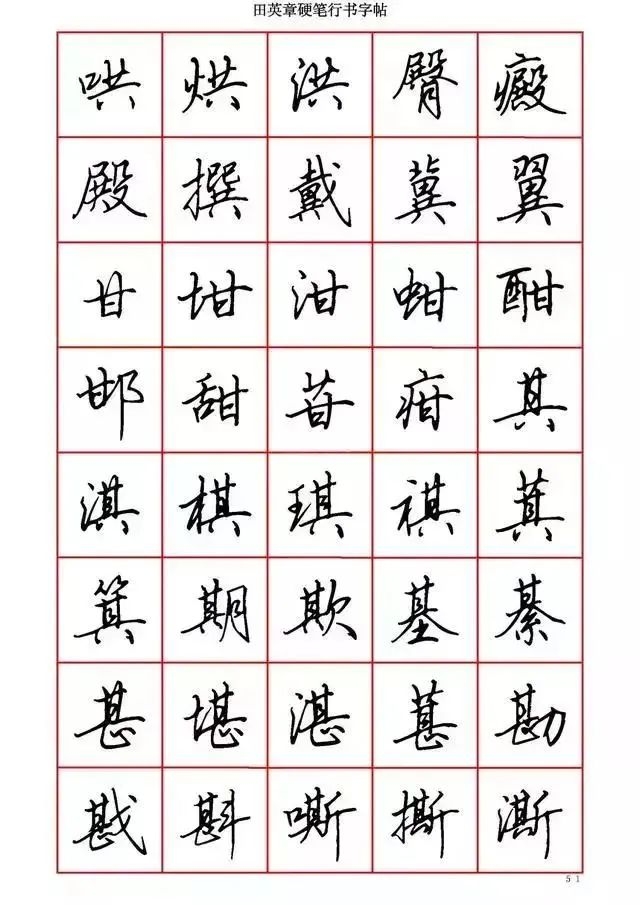 田英章硬笔行书字帖
哄烘洪臀癜
殿撰戴冀翼
甘坩泔蚶酣
邯甜苷疳其
淇棋琪祺萁
箕期欺基綦
甚堪湛葚勘
戡斟嘶撕澌
51